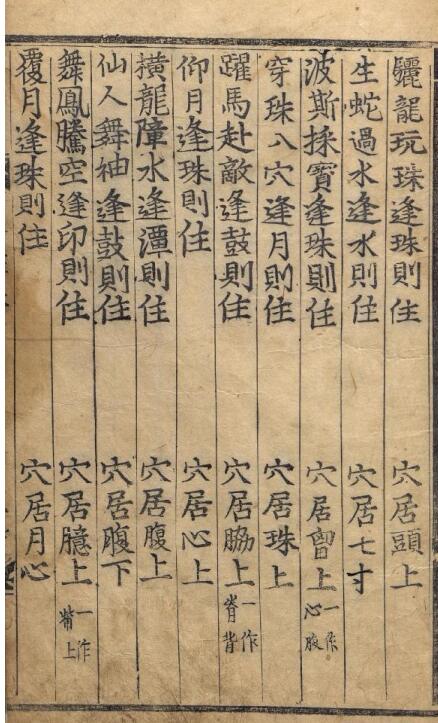 驪龍玩珠逢珠則住 穴居頭上
生蛇過水逢水則住 穴居七寸
波斯揉寶逢珠則住 穴居會上 一作心腋
穿珠八穴逢月則住 穴居珠上
躍馬赴敵逢鼓則住 穴居脇上 一作脊背
仰月逢珠則住 穴居心上
橫龍障水逢潭則住 穴居腹上
仙人舞袖逢鼓則住 穴居腹下
舞鳳騰空逢印則住 穴居臆上 一作觜上
覆月逢珠則住 穴居月心